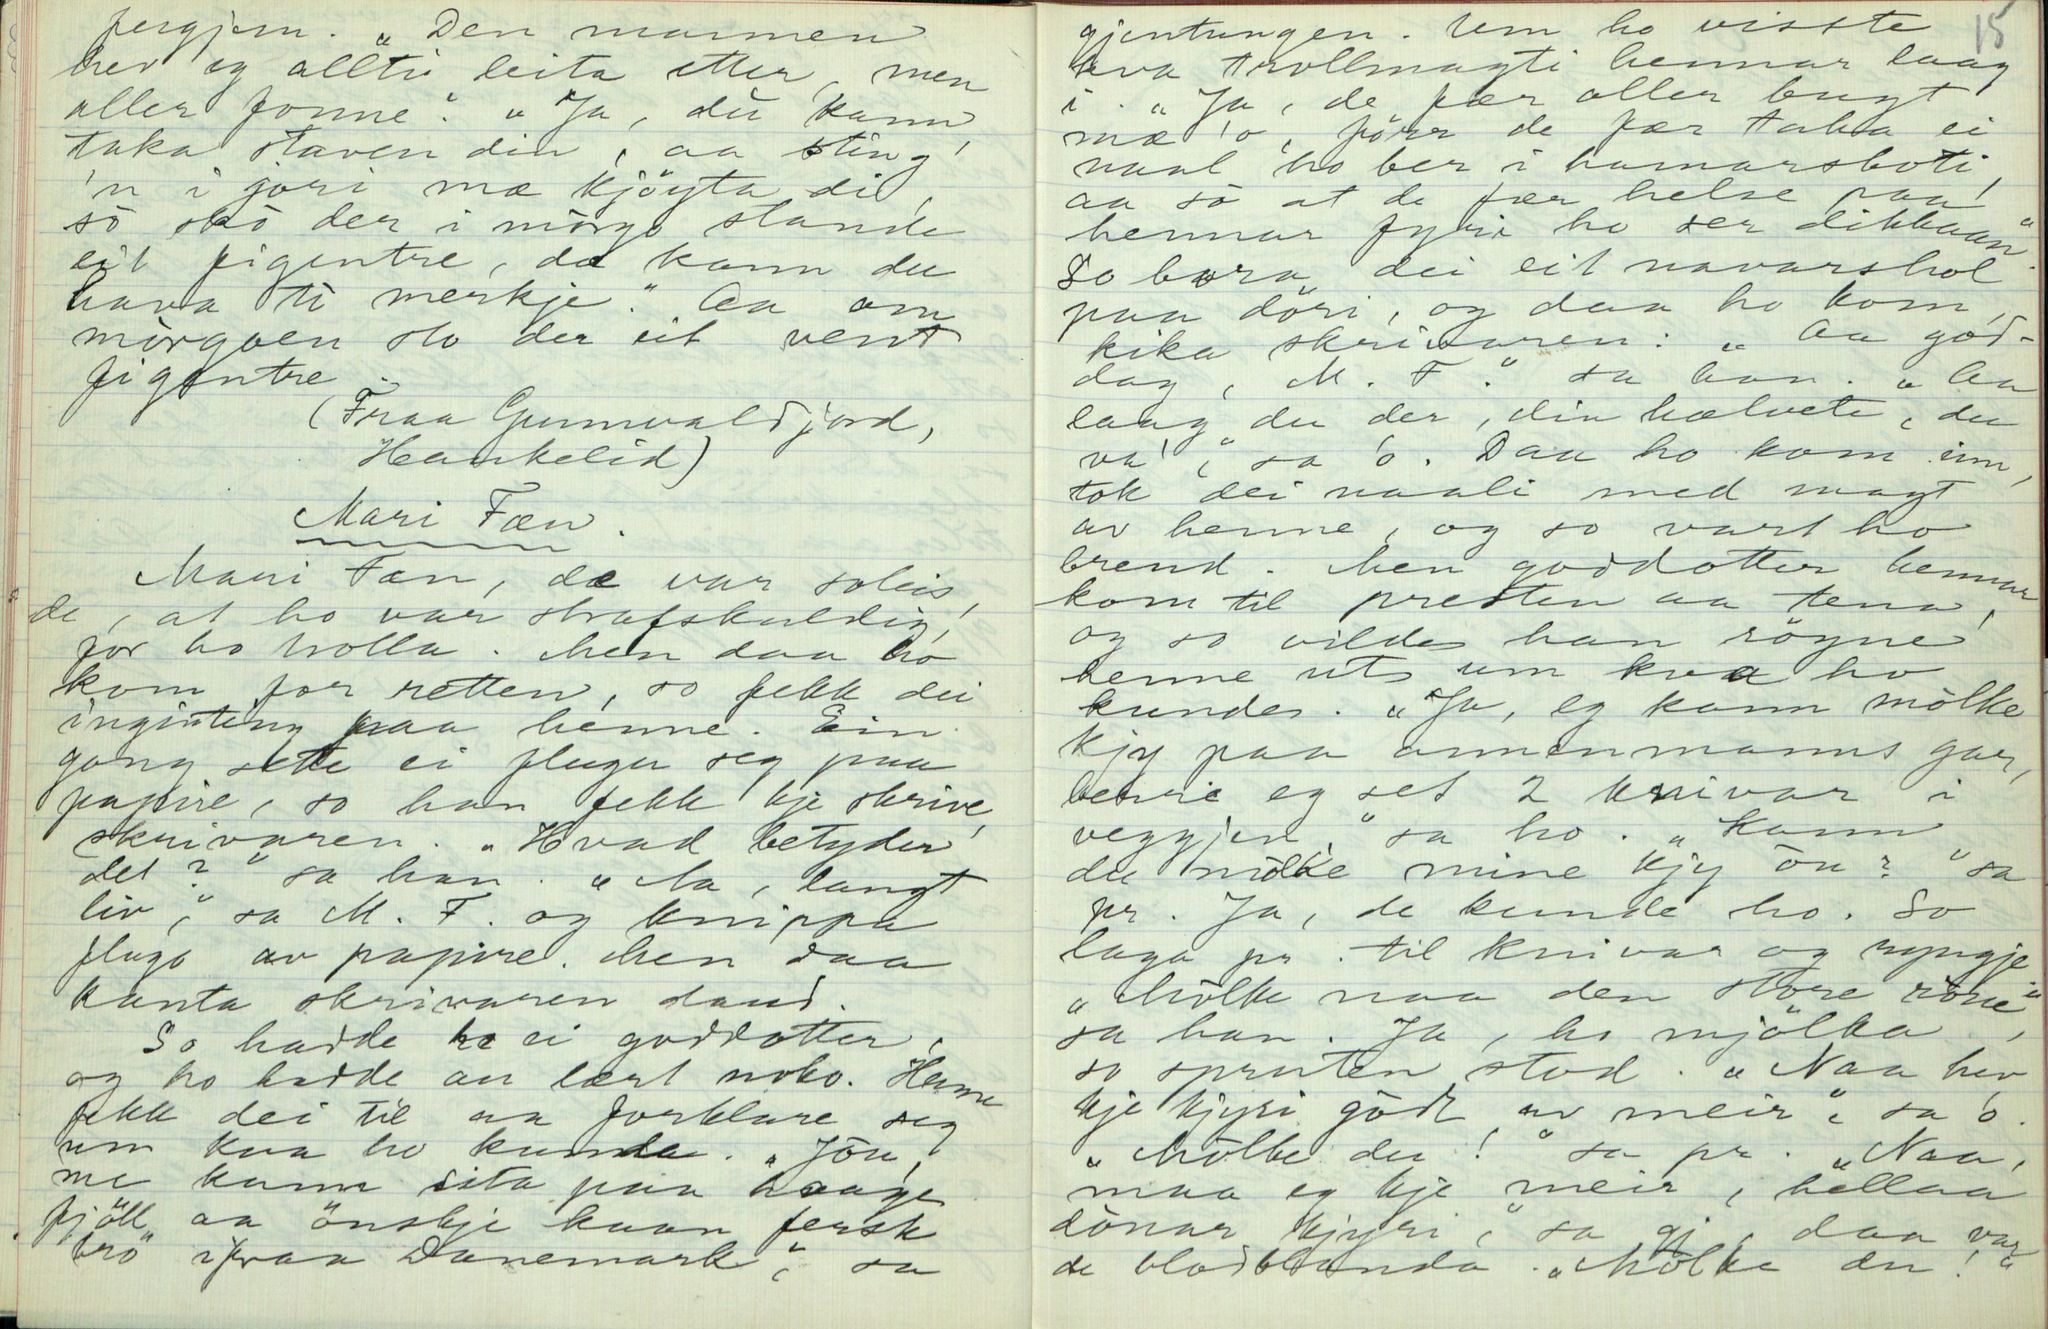 fergjern. „Den mannen
hev eg allti leita etter, men
aller fonne". „Ja, du kann
taka staven din, aa sting
'n i jori mæ kjöyta di,
so sto der i mörgo stande
eit figentre, dæ kann du
hava ti merkje." Aa om
mörgoen sto der eit vent
figentre.
(Fraa Gunnvald Fjord,
Haukelid)
Mari Fæn.
Mari Fæn, dæ var soleis
de, at ho var strafskuldig,
for ho trolla. Men daa ho
kom for retten, so fekk dei
inginting paa henne. Ein
gong sette ei fluge seg paa
papire, so han fekk kje skrive,
skrivaren. „Hvad betyder
det?" sa han. „Aa, langt
liv," sa M. F. og knippa
flugo av papire. Men daa
kanta skrivaren daud.
So hadde ho ei goddotter,
og ho hadde au lært noko. Henne
fekk dei til aa forklare seg
um kva ho kunde. „Jöu,
me kann sita paa haage
fjöll aa önskje kaan fersk
bro ifraa Danemark," sa
15
gjentungen. Um ho visste
hva trollmagti hennar laag
i. „Ja, de fær aller bugt
mæ 'o, förr de fær taka ei
naal ho ber i hamarsboti,
aa so at de fær helse paa
hennar fyrr ho ser dikkaan".
So bora dei eit navarshol
paa döri, og daa ho kom,
kika skrivaren: „Aa god-
dag, M. F." sa han. „Aa
laag du der, din hælvete, du
va'," sa 'o. Daa ho kom inn,
tok dei naali med magt
av henne, og so vart ho
brend. Men goddotter hennar
kom til presten aa tena,
og so vilde han röyne
henne ut um kva ho
kunde. „Ja, eg kann mölke
kjy paa annenmanns gar,
berre eg set 2 knivar i
veggjen," sa ho. „Kann
du mölke mine kjy öu?" sa
pr. Ja, de kunde ho. So
laga pr. til knivar og ryngje.
„Mölke naa den store röue"
sa han. Ja, ho mjölka,
so spruten stod. „Naa hev
kje kjyri gödt av meir", sa 'o.
„Mölke du!" sa pr. „Naa,
maa eg kje meir, hellaa
dönar kjyri," sa gj, daa var
de blodblanda. „Mölke du!"